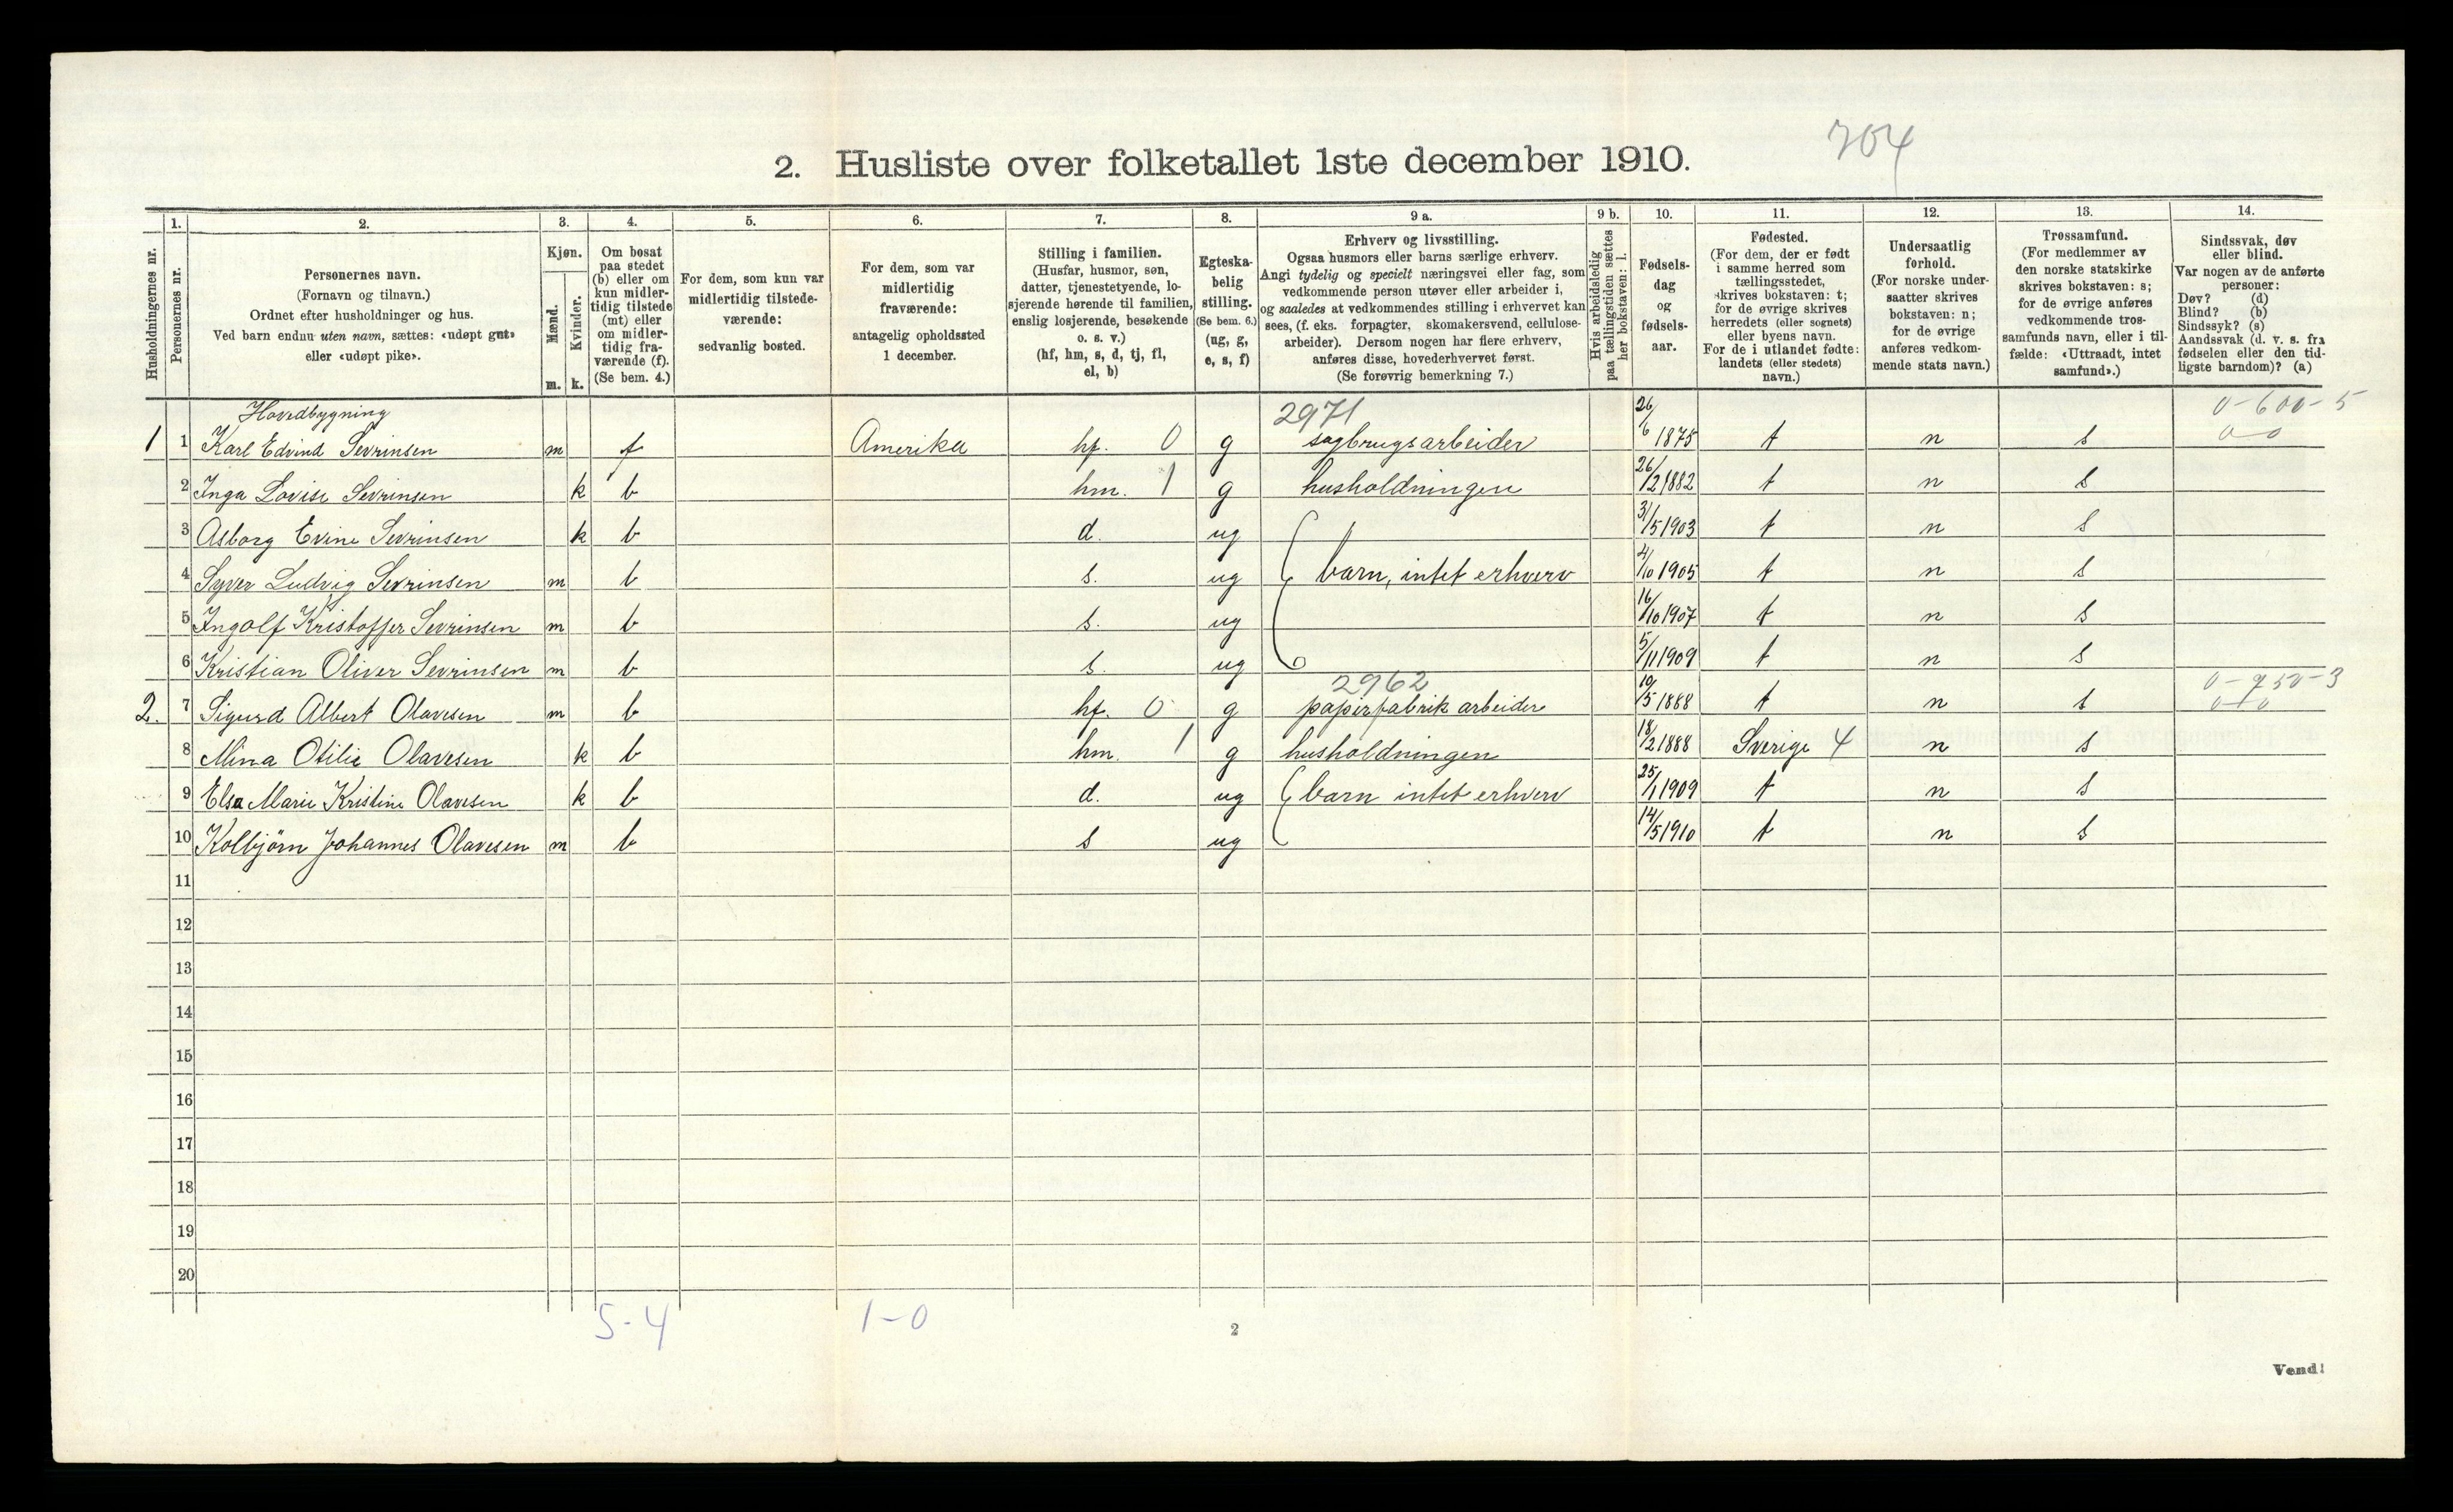 704
2. Husliste over folketallet 1ste december 1910.
Husholdningernes nr.
1.
Personernes nr.
2.
Personernes navn.
(Fornavn og tilnavn.)
Ordnet efter husholdninger og hus.
Ved barn endnu uten navn, sættes: «udøpt gut»
eller «udøpt pike».
3.
Kjøn.
Mænd.
Kvinder.
m. k.
4.
Om bosat
paa stedet
(b) eller om
kun midler-
tidig tilstede
(mt) eller
om midler-
tidig fra-
værende (f).
(Se bem. 4.)
5.
For dem, som kun var
midlertidig tilstede-
værende:
sedvanlig bosted.
6.
For dem, som var
midlertidig
fraværende:
antagelig opholdssted
1 december.
7.
Stilling i familien.
(Husfar, husmor, søn,
datter, tjenestetyende, lo-
sjerende hørende til familien,
enslig losjerende, besøkende
o. s. v.)
(hf, hm, s, d, tj, fl,
el, b)
8.
Egteska-
belig
stilling.
(Se bem. 6.)
(ug, g,
e, s, f)
9 a.
Erhverv og livsstilling.
Ogsaa husmors eller barns særlige erhverv.
Angi tydelig og specielt næringsvei eller fag, som
vedkommende person utøver eller arbeider i,
og saaledes at vedkommendes stilling i erhvervet kan
sees, (f. eks. forpagter, skomakersvend, cellulose-
arbeider). Dersom nogen har flere erhverv,
anføres disse, hovederhvervet først.
(Se forøvrig bemerkning 7.)
9 b.
Hvis arbeidsledig
paa tællingstiden sættes
her bokstaven: l.
10.
Fødsels-
dag
og
fødsels-
aar.
11.
Fødested.
(For dem, der er født
i samme herred som
tællingsstedet,
skrives bokstaven: t;
for de øvrige skrives
herredets (eller sognets)
eller byens navn.
For de i utlandet fødte:
landets (eller stedets)
navn.)
12.
Undersaatlig
forhold.
(For norske under-
saatter skrives
bokstaven: n;
for de øvrige
anføres vedkom-
mende stats navn.)
13.
Trossamfund.
(For medlemmer av
den norske statskirke
skrives bokstaven: s;
for de øvrige anføres
vedkommende tros-
samfunds navn, eller i til-
fælde: «Uttraadt, intet
samfund».)
14.
Sindssvak, døv
eller blind.
Var nogen av de anførte
personer:
Døv? (d)
Blind? (b)
Sindssyk? (s)
Aandssvak (d. v. s. fra
fødselen eller den tid-
ligste barndom)? (a)
Hovedbygning 2971 0-600-5
1 1 Karl Edvind Sevrinsen m f Amerika hf. 0 g sagbrugsarbeider 26/6 1875 t n s 0-0
2 Inga Lovise Sevrinsen k b hm. 1 g husholdningen 26/2 1882 t n s
3 Asborg Evine Sevrinsen k b d. ug 31/5 1903 t n s
4 Syver Ludvig Sevrinsen m b s. ug barn, intet erhverv 4/10 1905 t n s
5 Ingolf Kristoffer Sevrinsen m b s. ug 16/10 1907 t n s
6 Kristian Oliver Sevrinsen m b s. ug 5/11 1909 t n s
2962 0-950-3
2. 7 Sigurd Albert Olavesen m b hf. 0 g papirfabrik arbeider 10/5 1888 t n s
8 Mina Otilie Olavesen k b hm. 1 g husholdningen 18/2 1888 Sverige 4 n s
9 Elsa Marie Kristine Olavesen k b d. ug barn intet erhverv 25/1 1909 t n s
10 Kolbjörn Johannes Olavesen m b s ug 14/5 1910 t n s
11
12
13
14
15
16
17
18
19
20
5-4 1-0
2
Vend!